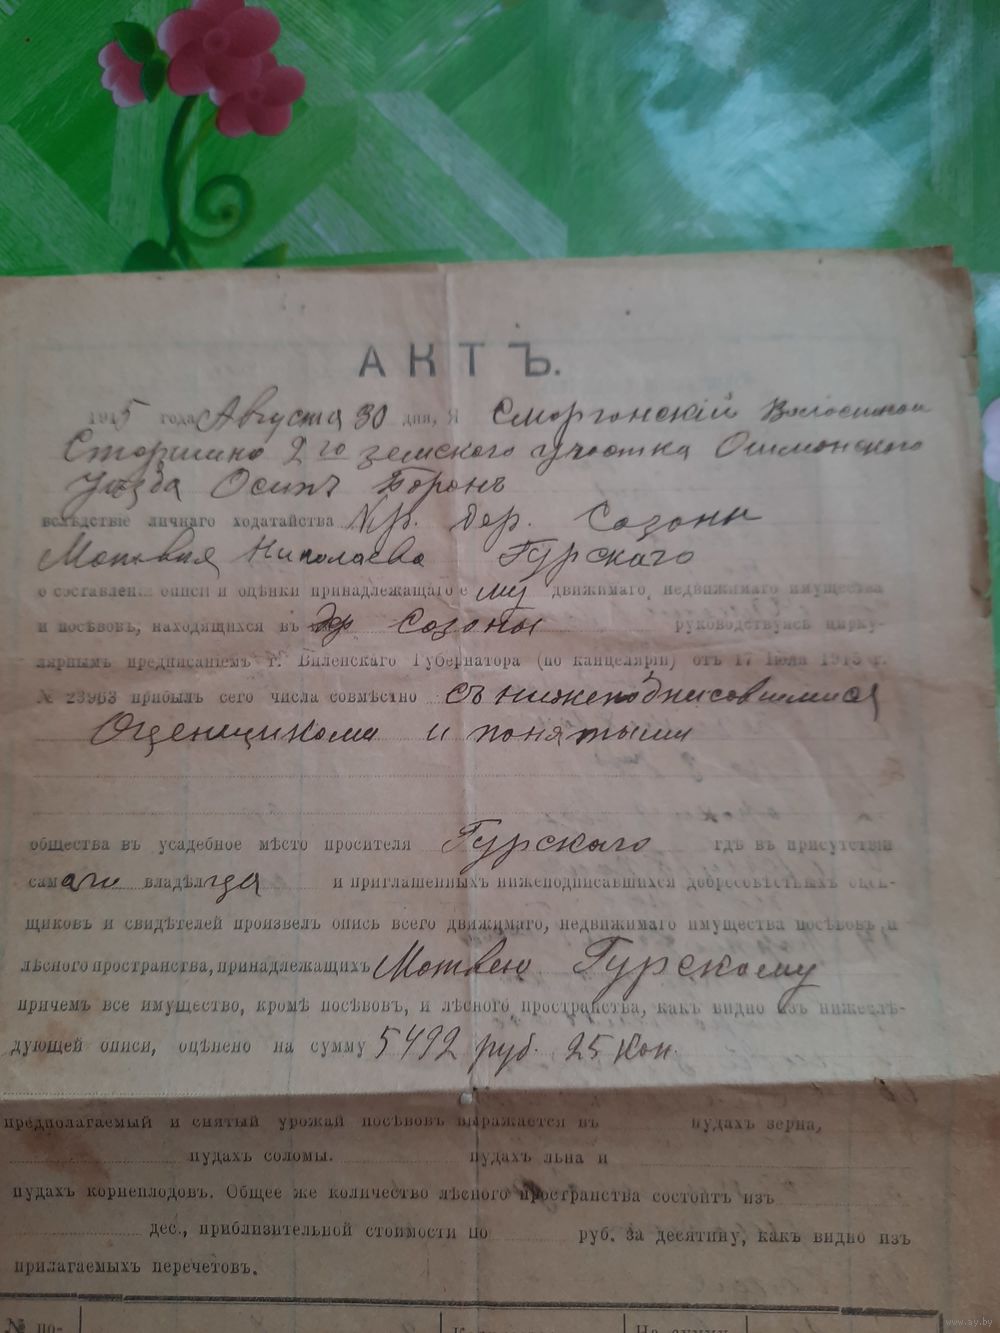 АКТЪ.
1915 года Августа 30 дня, Я Сморгонскій Волостной
Старшина 2го земского участка Ошмянскаго
Уѣзда Осипъ Боронъ
вслѣдствіе личнаго ходатайства Кр. дер. Сазоны
Матвѣя Николаева Гурскаго
о составленіи описи и оцѣнки принадлежащаго ему движимаго, недвижимаго имущества
и посѣвовъ, находящихся въ дер Сазоны руководствуясь цирку-
лярнымъ предписаніемъ г. Виленскаго Губернатора (по канцеляріи) отъ 17 Іюля 1915 г.
№ 23963 прибылъ сего числа совмѣстно съ нижеподписавшимися
Оценщиками и понятыми
общества въ усадебное мѣсто просителя Гурскаго гдѣ въ присутствіи
самаго владѣлца и приглашенныхъ нижеподписавшихся добросовѣстныхъ оцѣн-
щиковъ и свидѣтелей произвелъ опись всего движимаго, недвижимаго имущества посѣвовъ и
лѣсного пространства, принадлежащихъ Матвею Гурскому
причемъ все имущество, кромѣ посѣвовъ, и лѣсного пространства, какъ видно изъ нижеслѣ-
дующей описи, оцѣнено на сумму 5492 руб. 25 коп.
предполагаемый и снятый урожай посѣвовъ выражается въ пудахъ зерна,
пудахъ соломы. пудахъ льна и
пудахъ корнеплодовъ. Общее же количество лѣсного пространства состоитъ изъ
дес., приблизительной стоимости по руб. за десятину, какъ видно изъ
прилагаемыхъ перечетовъ.
№ по-
На сумму
www.ay.by